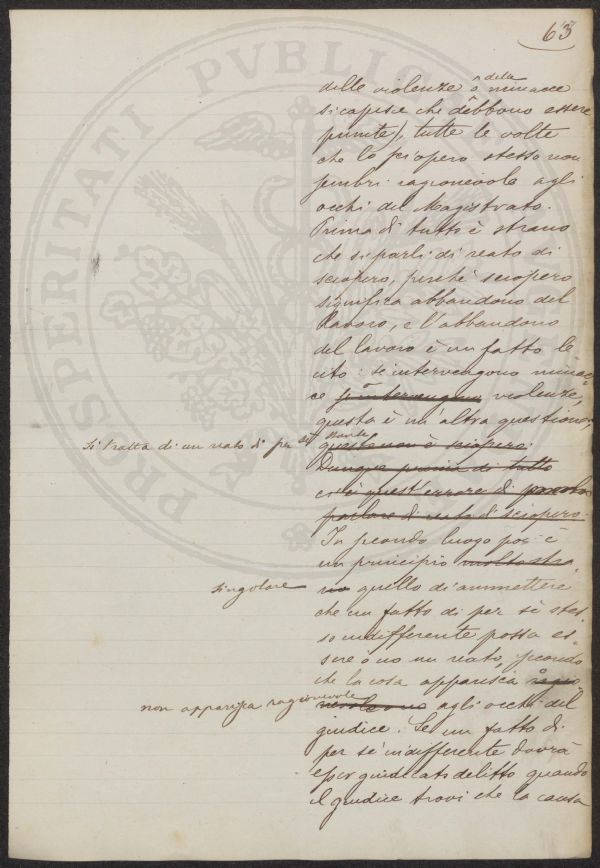 63
delle violenze o della minacce
si capisce che debbono essere
punite), tutte le volte
che lo sciopero stesso non
sembri ragionevole agli
occhi del Magistrato.
Prima di tutto è strano
che si parli di reato di
sciopero, perchè sciopero
significa abbandono del
lavoro, e l'abbandono
del lavoro è un fatto le
cito: se intervengono minac
ce o intervengono violenze,
questa è un'altra questione.
si tratta di un reato di per sè stante
questo non è sciopero.
Dunque prima di tutto
c'è quest'errore di
parlare di reato di sciopero.
In secondo luogo poi è
un principio molto stra
singolare
no quello di ammettere
che un fatto di per sè stes
so indifferente possa es
sere o no un reato, secondo
che la cosa apparisca o
non apparisca ragionevole
agli occhi del
giudice. Se un fatto di
per sè indifferente dovrà
esser giudicato delitto quando
il giudice trovi che la causa
PROSPERITATI PVBLICAE